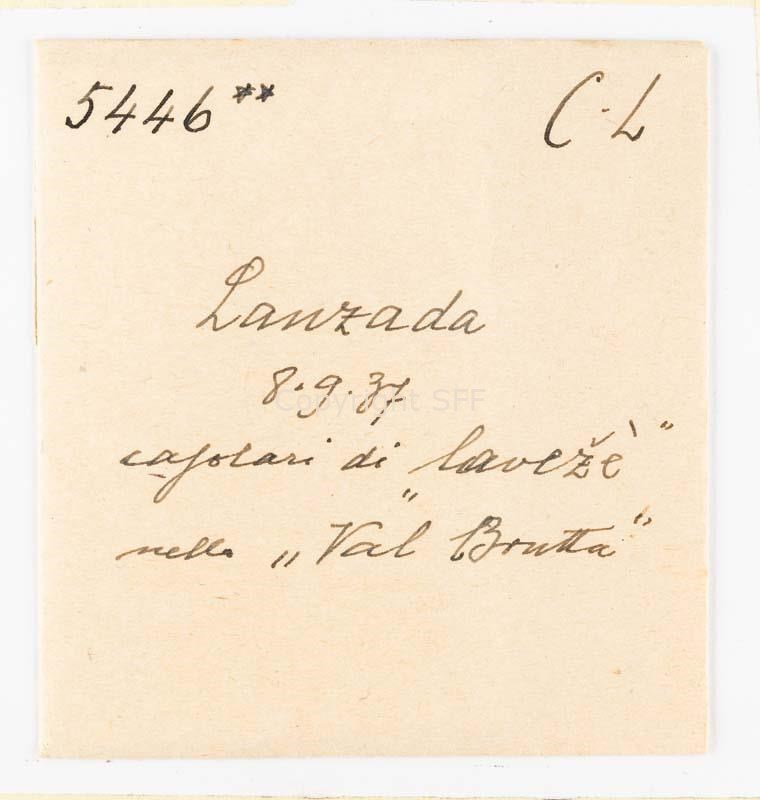 5446** C. L
Lanzada
8.9.37
Copyright SFF
casolari di „lavežè"
nella „Val Brutta"